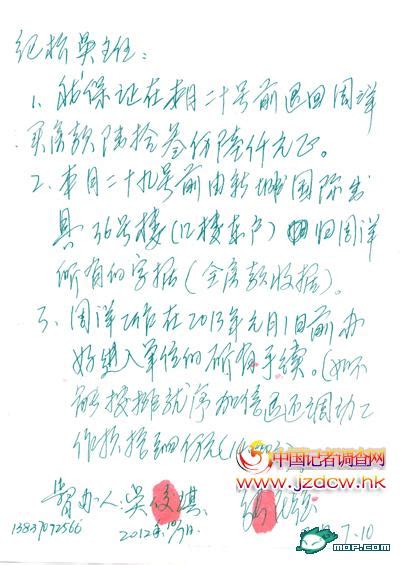 纪检吴主任：
1、我保证在本月二十号前退回周洋
买房款陆拾叁份陆仟元正。
2、本月二十九号前由新城国际出
具36号楼(12楼东户)归周洋
所有的字据(全房款收据)。
3、周洋工作在2013年元月1日前办
好进入单位的所有手续。(如不
能安排就序加倍退还调动工
作损
暂办人：吴 琪
13837072566 2012年
7.10
中国记者调查网
www.jzdcw.hk
MOP.COM